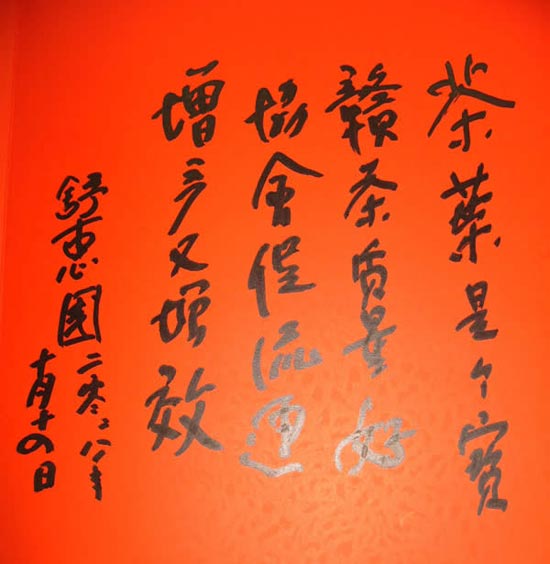 茶葉是个寶
贛茶质量好
協會促流通
增产又增效
舒惠國 二零零八年
十月十四日